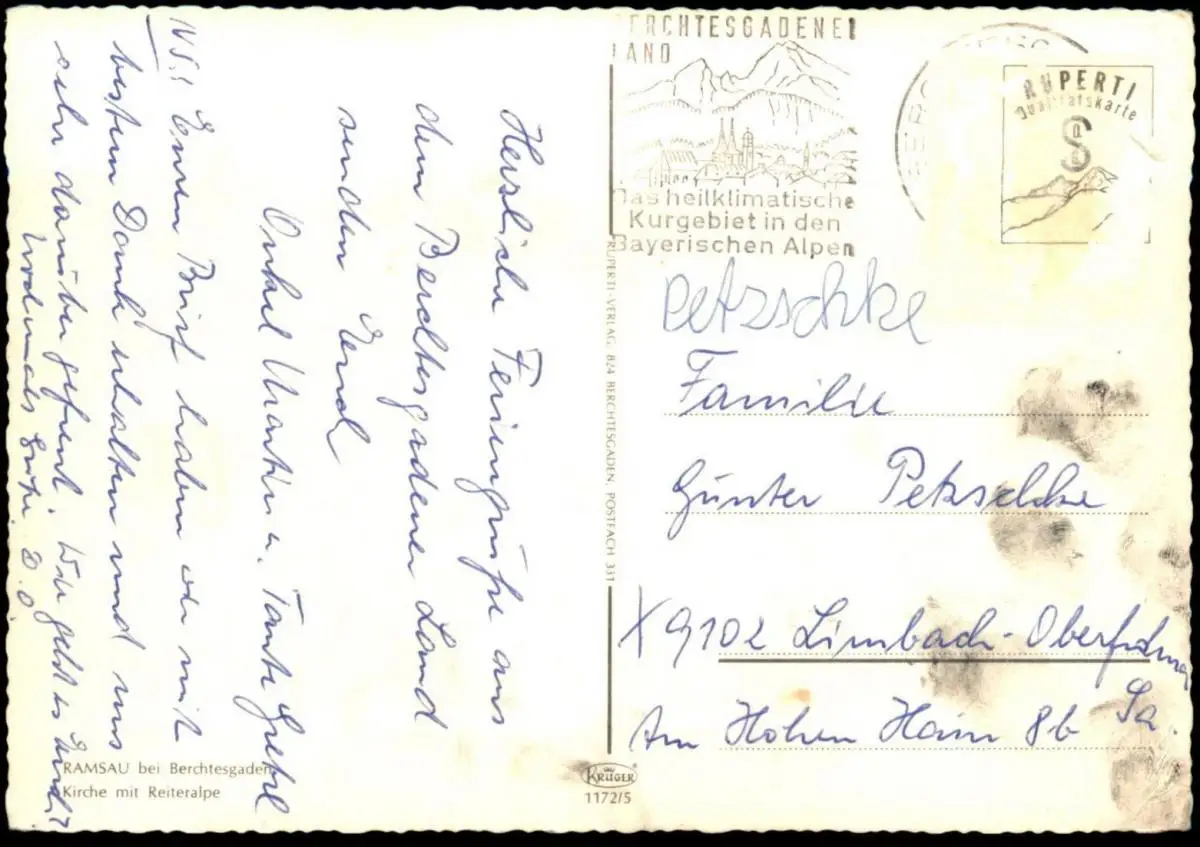 Herzliche Feriengrüße aus
dem Berchtesgadener Land
senden Euch
Onkel Martin u. Tante Gretel
N.S.! Euren Brief haben wir mit
bestem Dank erhalten und uns
sehr darüber gefreut. Wie geht es Euch?
Nochmals
BERCHTESGADENER
LAND
Das heilklimatische
Kurgebiet in den
Bayerischen Alpen
RUPERTI
Qualitätskarte
RUPERTI-VERLAG, 824 BERCHTESGADEN, POSTFACH 331
Petzschke
Familie
Günter Petzschke
X 9102 Limbach-Oberfrohna
Sa.
Am Hohen Hain 8b
RAMSAU bei Berchtesgaden
Kirche mit Reiteralpe
KRÜGER
1172/5